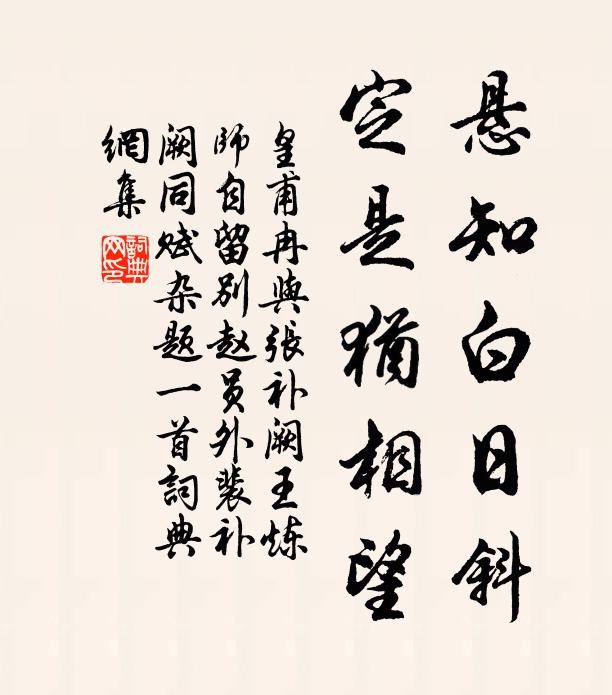 悬知白日斜
定是犹相望
皇甫冉與張补阙王炼
師自留别赵员外裴补
阙同赋杂题一首詞典
網集
詞典網印